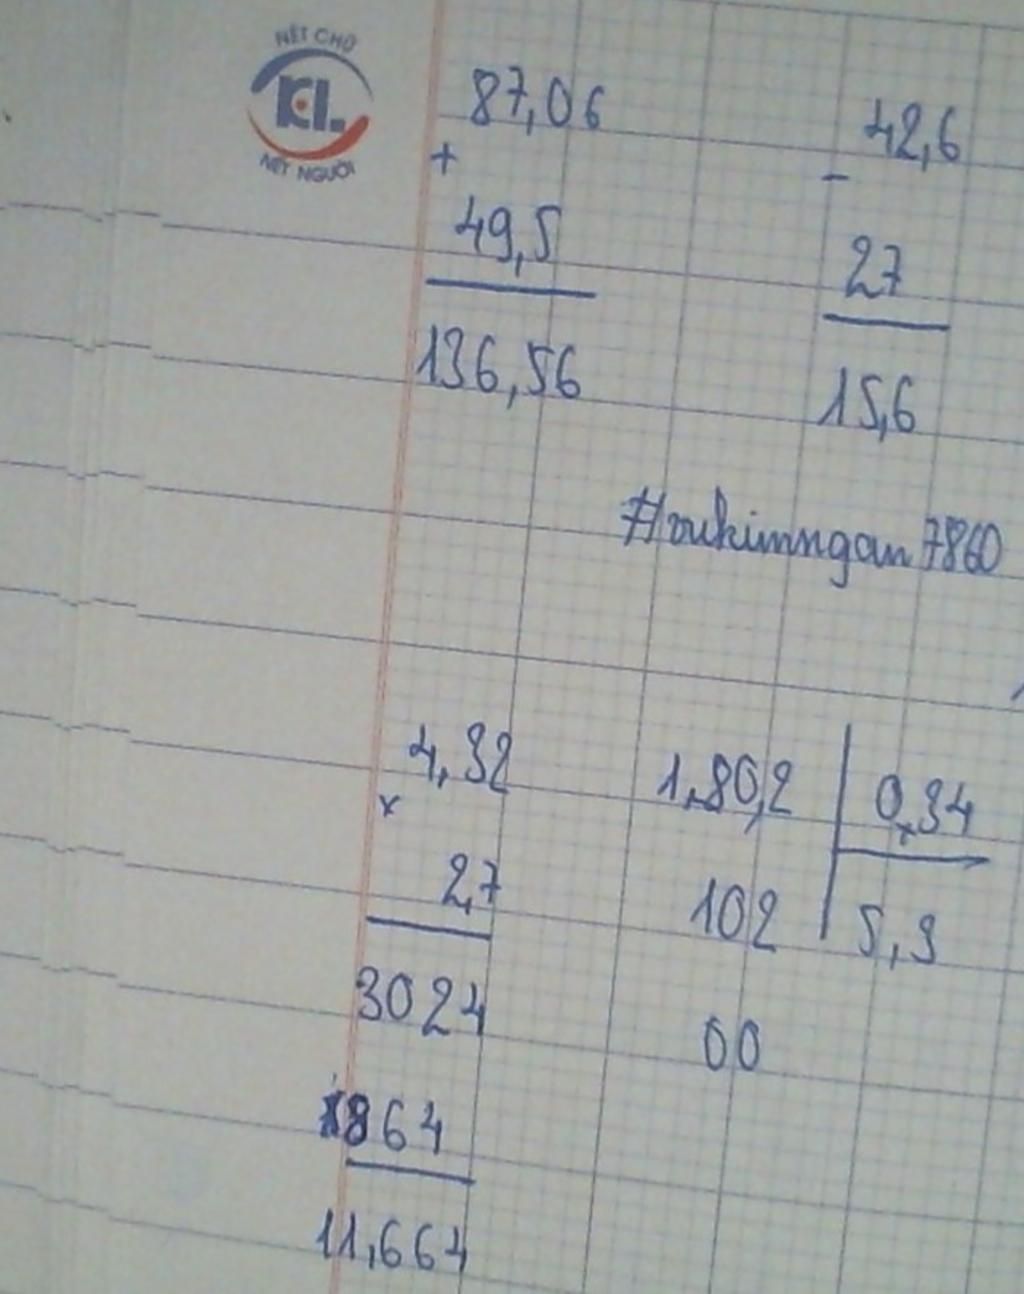 NÉT CHỮ
KL
NẾT NGƯỜI
87,06
+
49,5
136,56
42,6
-
27
15,6
#vukimngan7860
4,32
x
2,7
3024
864
11,664
1,80,2 0,34
102 5,3
00